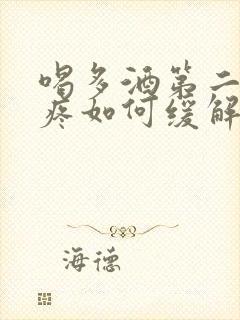 喝多酒第二
疼如何缓解
海德